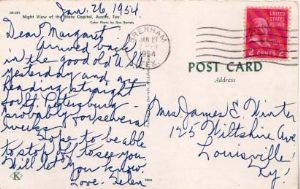 Jan. 26, 1954
Night View of the State Capitol, Austin, Tex.
Dear Margaret
Arrived back
in the good old U.S.
yesterday and are
heading for
St. Petersburg -
probably for several
weeks.
Hope to be able
to stop to see you.
Will let you know
Love - Helen
BRENHAM
JAN 27
1954
TEX.
2 CENTS 2
POST CARD
Address
Mrs. James E. Winter
125 Wiltshire Ave
Louisville
Ky.
K